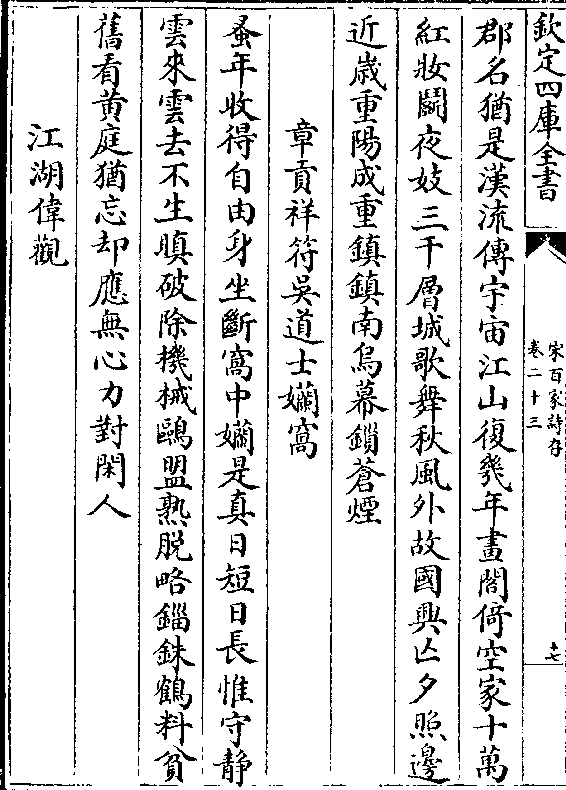 欽定四庫全書
宋百家詩存
卷二十三
十七
郡名猶是漢流傳宇宙江山復幾年畫閣倚空家十萬
紅妝鬭夜妓三千層城歌舞秋風外故國興亾夕照邊
近歲重陽成重鎮鎮南烏幕鎖蒼煙
章貢祥符吳道士嬾窩
蚤年收得自由身坐斷窩中嬾是真日短日長惟守静
雲來雲去不生瞋破除機械鷗盟熟脱略錙銖鶴料貧
舊看黄庭猶忘却應無心力對閑人
江湖偉觀